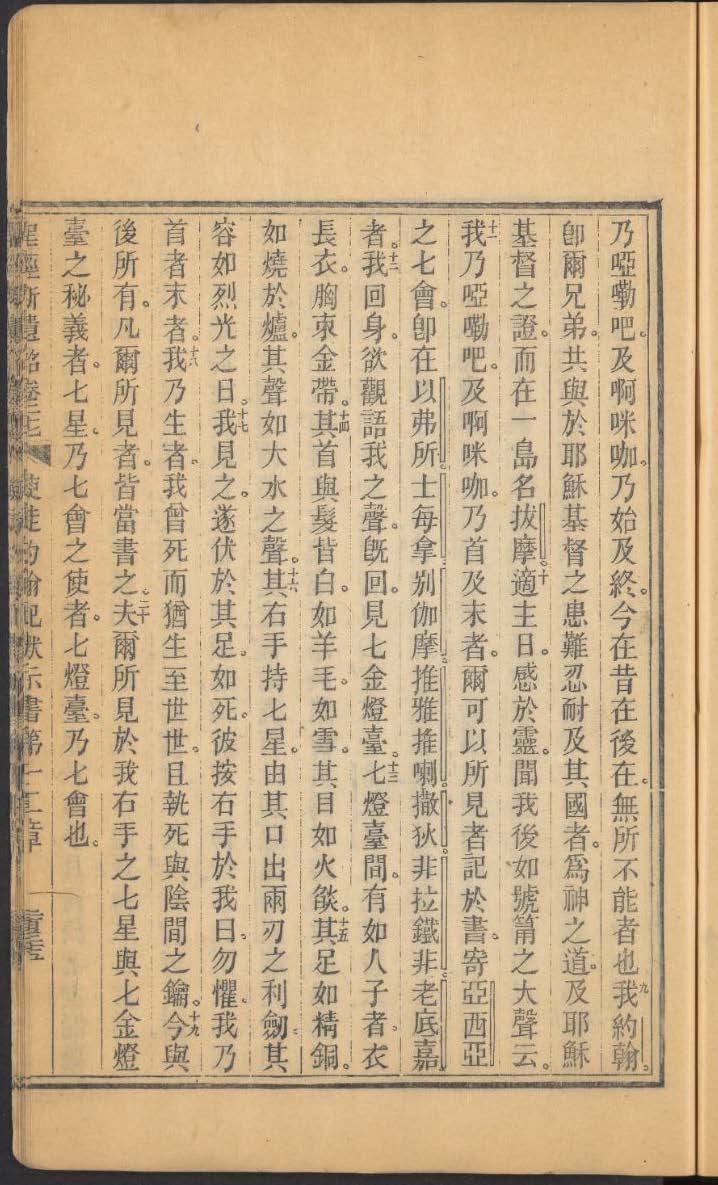 乃啞嘞吧。及啊咪咖。乃始及終。今在昔在後在。無所不能者也九我約翰。
卽爾兄弟。共與於耶穌基督之患難忍耐及其國者。爲神之道。及耶穌
基督之證。而在一島名拔摩。十適主日。感於靈。聞我後如號筩之大聲云。
十一我乃啞嘞吧。及啊咪咖。乃首及末者。爾可以所見者記於書。寄亞西亞
之七會。卽在以弗所。士每拿。别伽摩。推雅推喇。撒狄。非拉鐵非。老底嘉
者。十二我回身。欲觀語我之聲。旣回。見七金燈臺。十三七燈臺間。有如人子者。衣
長衣。胸束金帶。十四其首與髮皆白。如羊毛。如雪。其目如火燄。十五其足如精銅。
如燒於爐。其聲如大水之聲。十六其右手持七星。由其口出兩刃之利劒。其
容如烈光之日。十七我見之。遂伏於其足。如死。彼按右手於我曰。勿懼。我乃
首者末者。十八我乃生者。我曾死而猶生至世世。且執死與陰間之鑰。十九今與
後所有。凡爾所見者。皆當書之。二十夫爾所見於我右手之七星與七金燈
臺之秘義者。七星。乃七會之使者。七燈臺。乃七會也。
聖經新遺詔卷之七 使徒約翰記默示書第一章